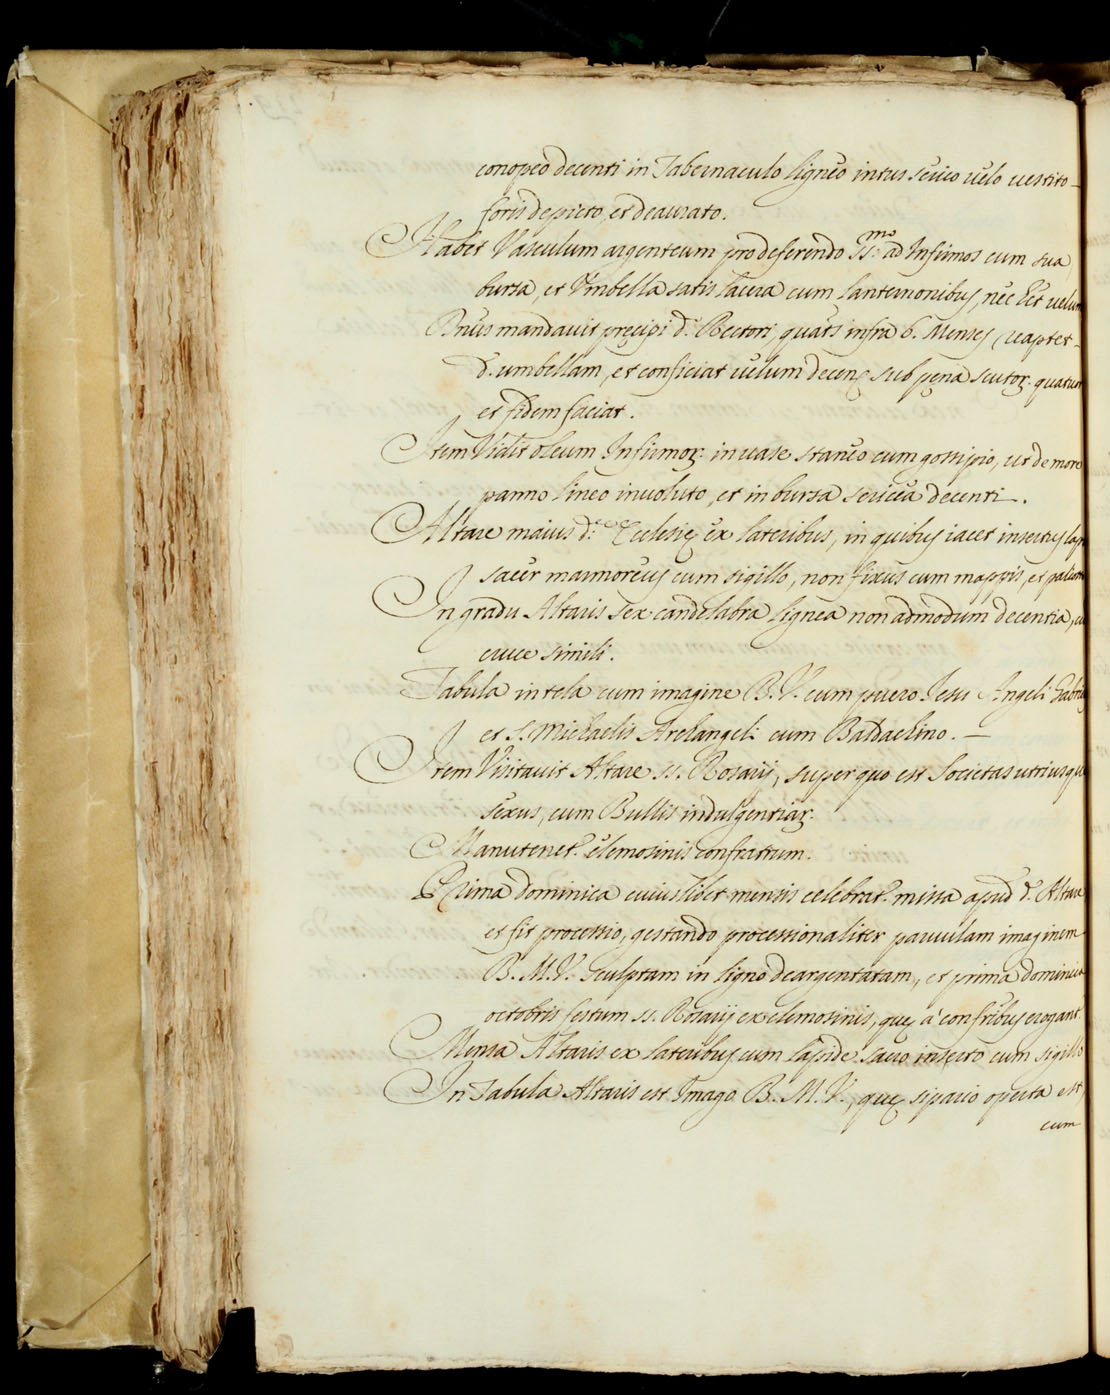 conopeo decenti in Tabernaculo ligneo intus serico velo vestito
foris depicto, et deaurato.
Habet Vasculum argenteum pro deferendo SS.mo ad Infirmos cum sua
bursa, et Vmbella satis lacera cum lanternonibus, nec Est velum
Dnus mandavit precipi d. Rectori, quats infra 6. Menses reaptet
d. umbellam, et conficiat velum decens sub pena scutor. quatuor
et fidem faciat.
Item Vidit oleum Infirmor. in vase staneo cum gossipio, ut de more
panno lineo involuto, et in bursa sericea decenti.
Altare maius d.e Ecclesie ex lateribus, in quibus iacet insertus lapis
sacer marmoreus cum sigillo, non fixus cum mappis, et palio
In gradu Altaris sex candelabra lignea non admodum decentia, cu
cruce simili.
Tabula in tela cum imagine B. V. cum puero Jesu Angeli Gabrie
et S. Michaelis Archangeli cum Baldachino. –
Item Visitavit Altare SS. Rosarij, super quo est Societas utriusque
sexus, cum Bullis indulgentiar.
Manutenet. elemosinis confratrum.
Prima dominica cuiuslibet mensis celebrat. missa apud d. Altare
et fit processio, gestando processionaliter parvulam imaginem
B. M. V. sculptam in ligno deargentatam, et prima dominica
octobris festum SS. Rosarij ex elemosinis, que à confribus erogant.
Mensa Altaris ex lateribus cum lapide sacro inserto cum sigillo
In Tabula Altaris est Imago B. M. V., que sipario operta est
cum